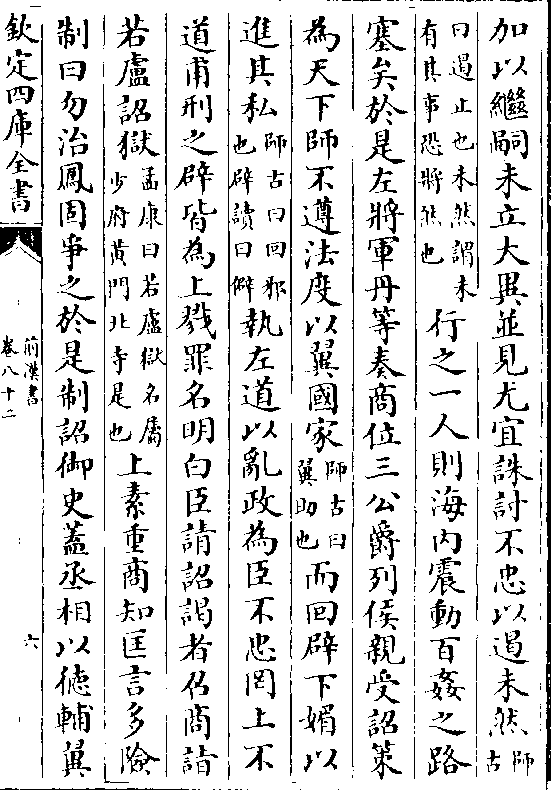 加以繼嗣未立大異並見尤宜誅討不忠以遏未然師古
曰遏止也未然謂未有其事恐將然也行之一人則海內震動百姦之路
塞矣於是左將軍丹等奏商位三公爵列侯親受詔策
為天下師不遵法度以翼國家師古曰翼助也而回辟下媚以
進其私師古曰回邪也辟讀曰僻執左道以亂政為臣不忠罔上不
道甫刑之辟皆為上戮罪名明白臣請詔謁者召商詣
若盧詔獄孟康曰若盧獄名屬少府黃門北寺是也上素重商知匡言多險
制曰勿治鳳固爭之於是制詔御史蓋丞相以德輔翼
欽定四庫全書
前漢書
卷八十二
六